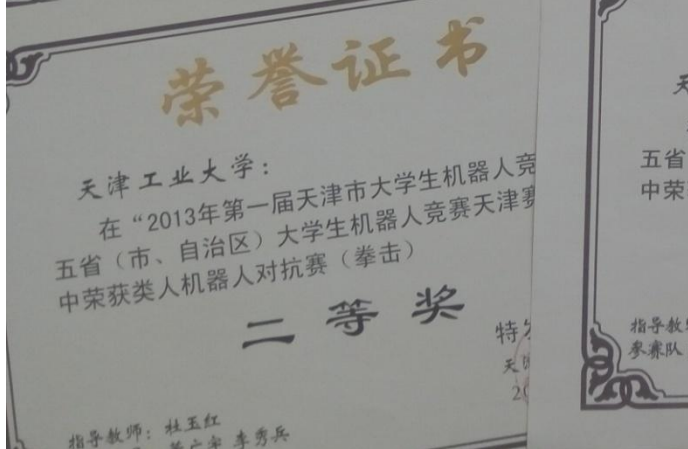 荣誉证书
天津工业大学：
在“2013年第一届天津市大学生机器人竞
五省（市、自治区）大学生机器人竞赛天津赛
中荣获类人机器人对抗赛（拳击）
二等奖
特发
天津
20
指导教师：杜玉红
李秀兵
天
五省
中荣
指导教
参赛队